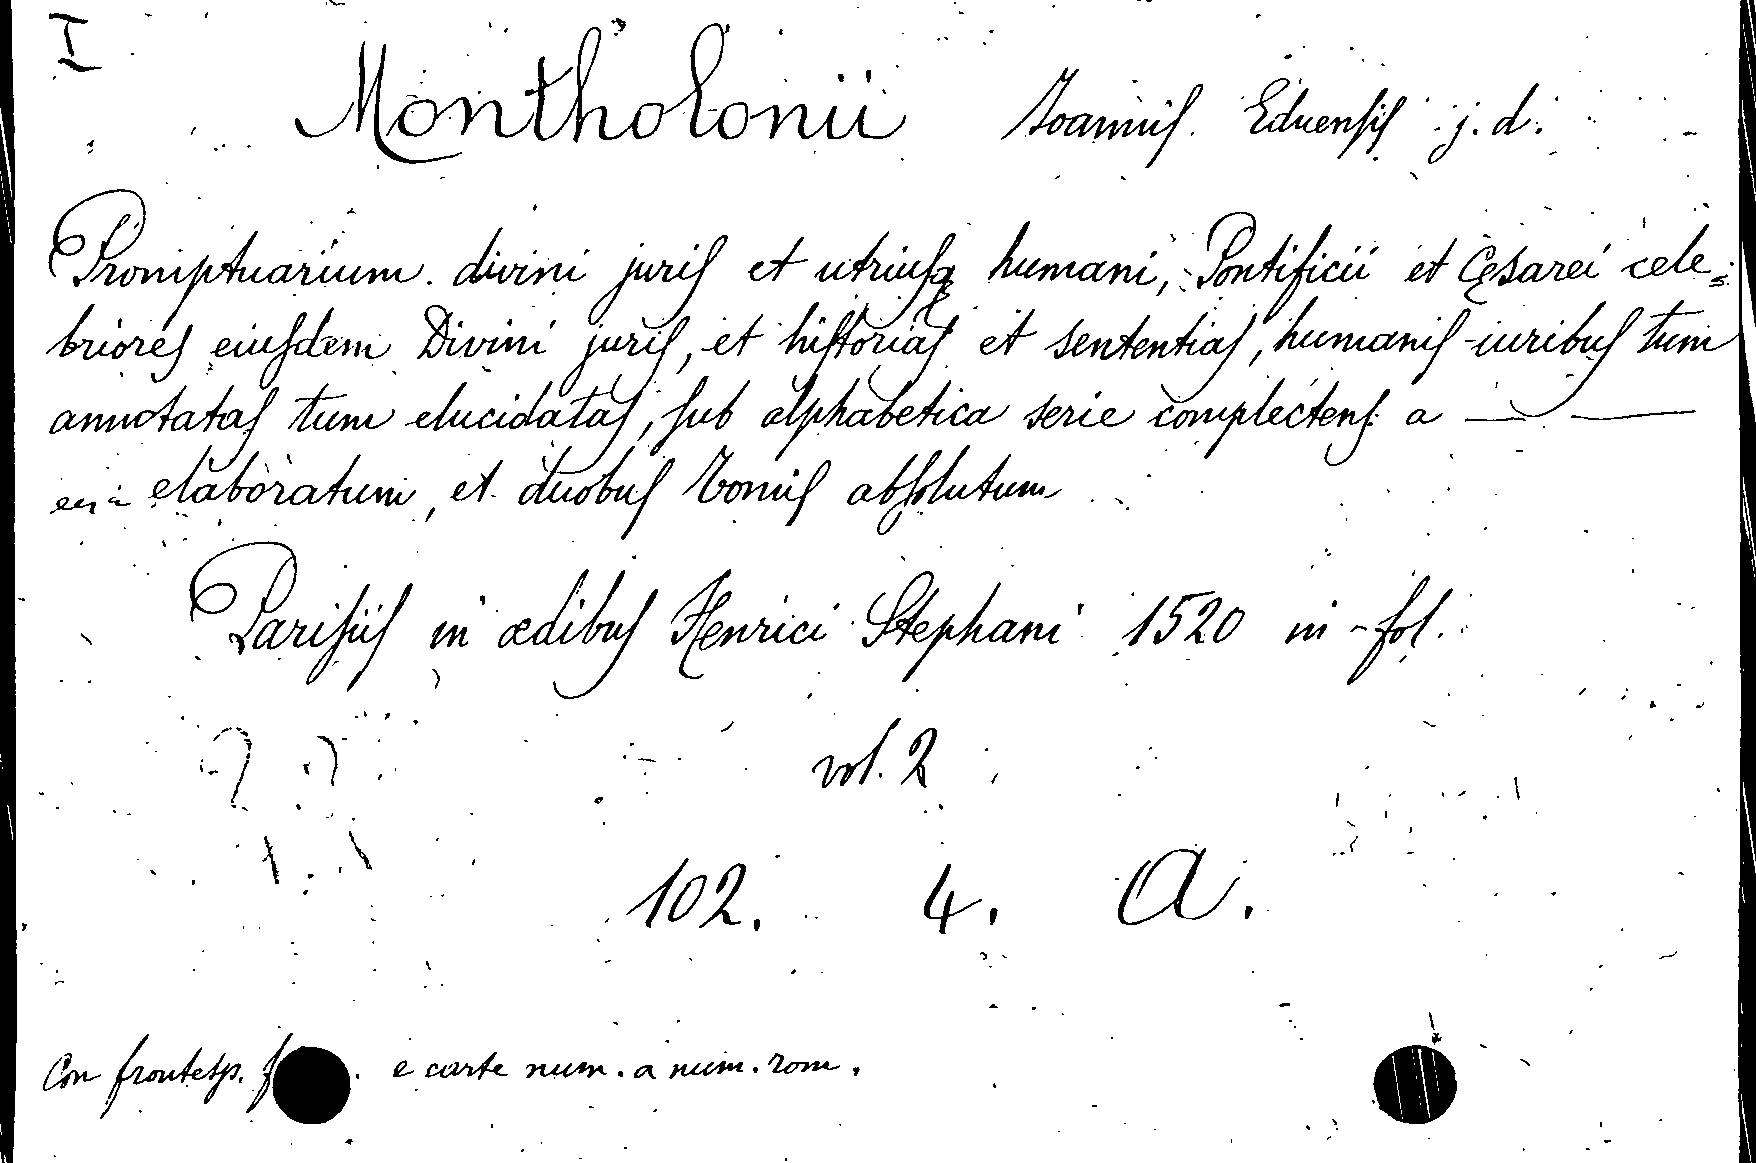 I
Montholonii Joannis Eduensis j. d.
Promptuarium divini juris et utriusq humani, Pontificii et Cęsarei cele=
briores eiusdem Divini juris, et historias et sententias, humanis iuribus tum
annotatas tum elucidatas, sub alphabetica serie complectens a — —
elaboratum, et duobus tomis absolutum
Parisiis in ædibus Henrici Stephani 1520 in-fol.
vol. 2
102. 4. A.
Con frontesp. e carte num. a num. rom.